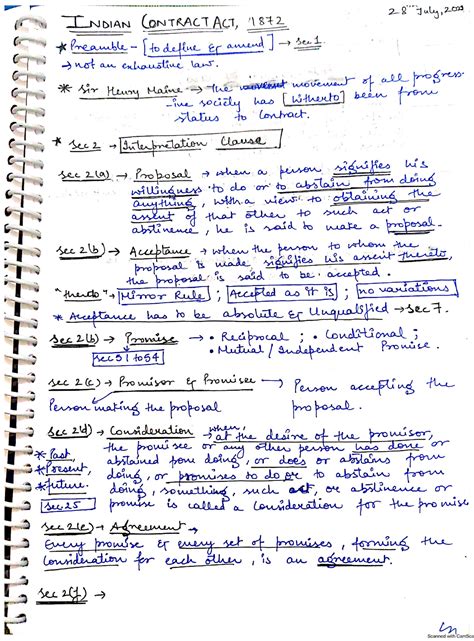 28 July, 2021
INDIAN CONTRACT ACT, 1872
* Preamble - [to define & amend] → sec 1
→ not an exhaustive law.
* Sir Henry Maine → the movement of all progress-
ive society has [hitherto] been from
status to Contract.
* Sec 2 → Interpretation Clause
Sec 2(a) → Proposal → when a person signifies his
willingness to do or to abstain from doing
anything, with a view to obtaining the
assent of that other to such act or
abstinence, he is said to make a proposal.
Sec 2(b) → Acceptance → when the person to whom the
proposal is made signifies his assent thereto,
the proposal is said to be accepted.
"thereto" → Mirror Rule ; Accepted as it is ; no variations
* Acceptance has to be absolute & Unqualified → Sec 7.
Sec 2(b) → Promise → • Reciprocal ; • Conditional ;
Sec 51 to 54 • Mutual/Independent Promise.
Sec 2(c) → Promisor & Promisee → Person accepting the
Person making the proposal proposal.
Sec 2(d) → Consideration → when, at the desire of the promisor,
* Past the promisee or any other person has done or
* Present, abstained from doing, or does or abstains from
* future. doing, or promises to do or to abstain from
Sec 25 doing, something, such act, or abstinence or
promise is called a consideration for the promise
Sec 2(e) → Agreement →
Every promise & every set of promises, forming the
Consideration for each other, is an agreement.
Sec 2(f) →
Scanned with CamScanner